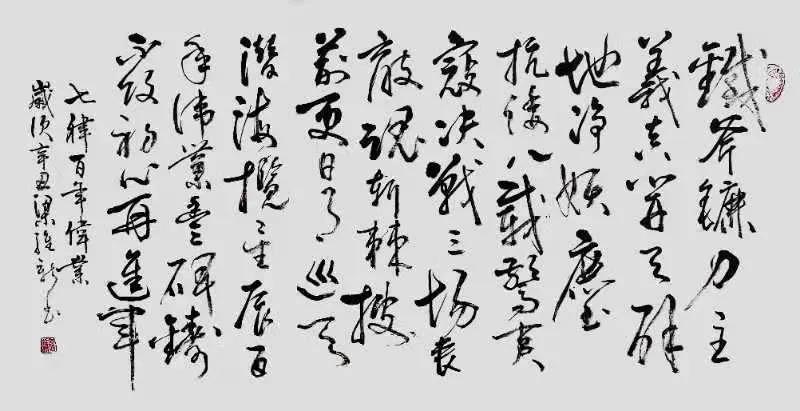 鐵斧鐮刀主
義真開天辟
地淨塵
抗倭八載驚夷
寇决戰三場喪
敵魂斬棘披
荊更日月巡天
潛海攬星辰百
年偉業豐碑鑄
不改初心再進軍
七律百年偉業
歲次辛丑梁維新書